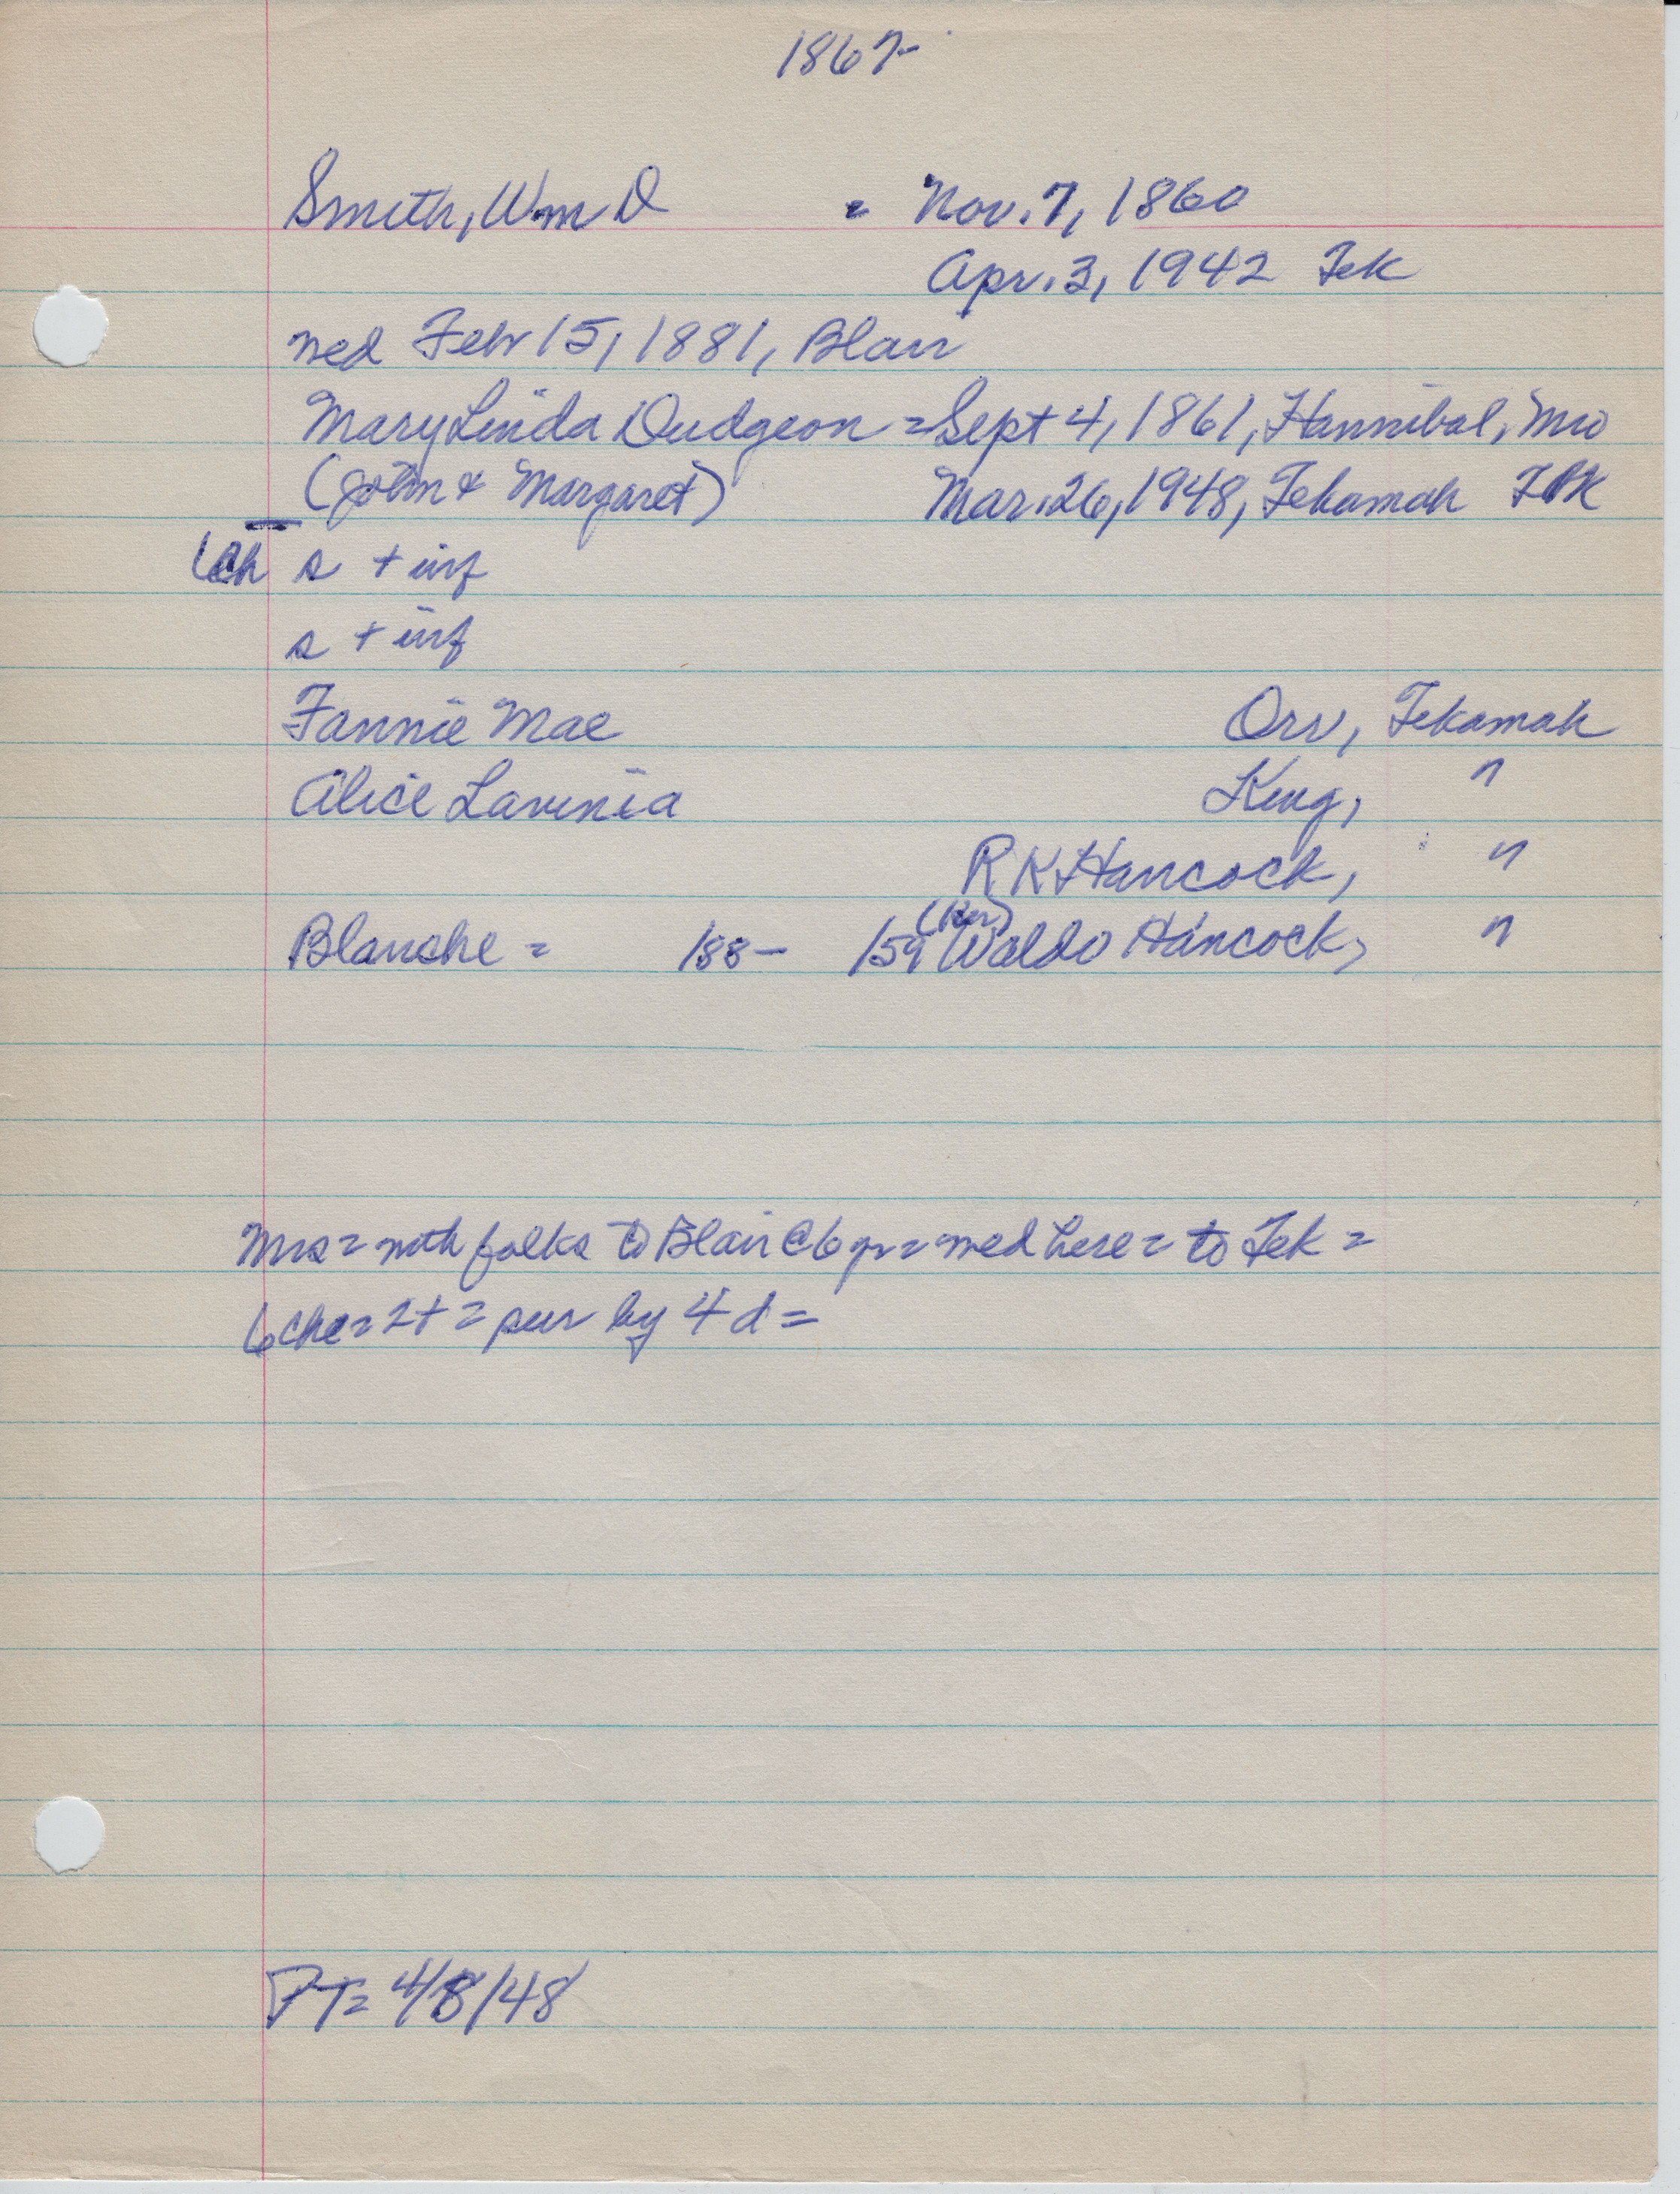 1867-
Smith, Wm D = Nov. 7, 1860
Apr. 3, 1942 Tek
med Febr 15, 1881, Blair
Mary Linda Dudgeon = Sept 4, 1861, Hannibal, Mo
(John & Margaret) Mar. 26, 1948, Tekamah
6ch s + inf
s + inf
Fannie Mae Orr, Tekamah
Alice Lavinia King, "
R K Hancock, "
(Ker)
Blanche = 188- /59 Waldo Hancock, "
Mrs = with folks to Blair @ 6 yr = med here = to Tek =
6 che = 2+ = sur by 4 d =
PT = 4/8/48